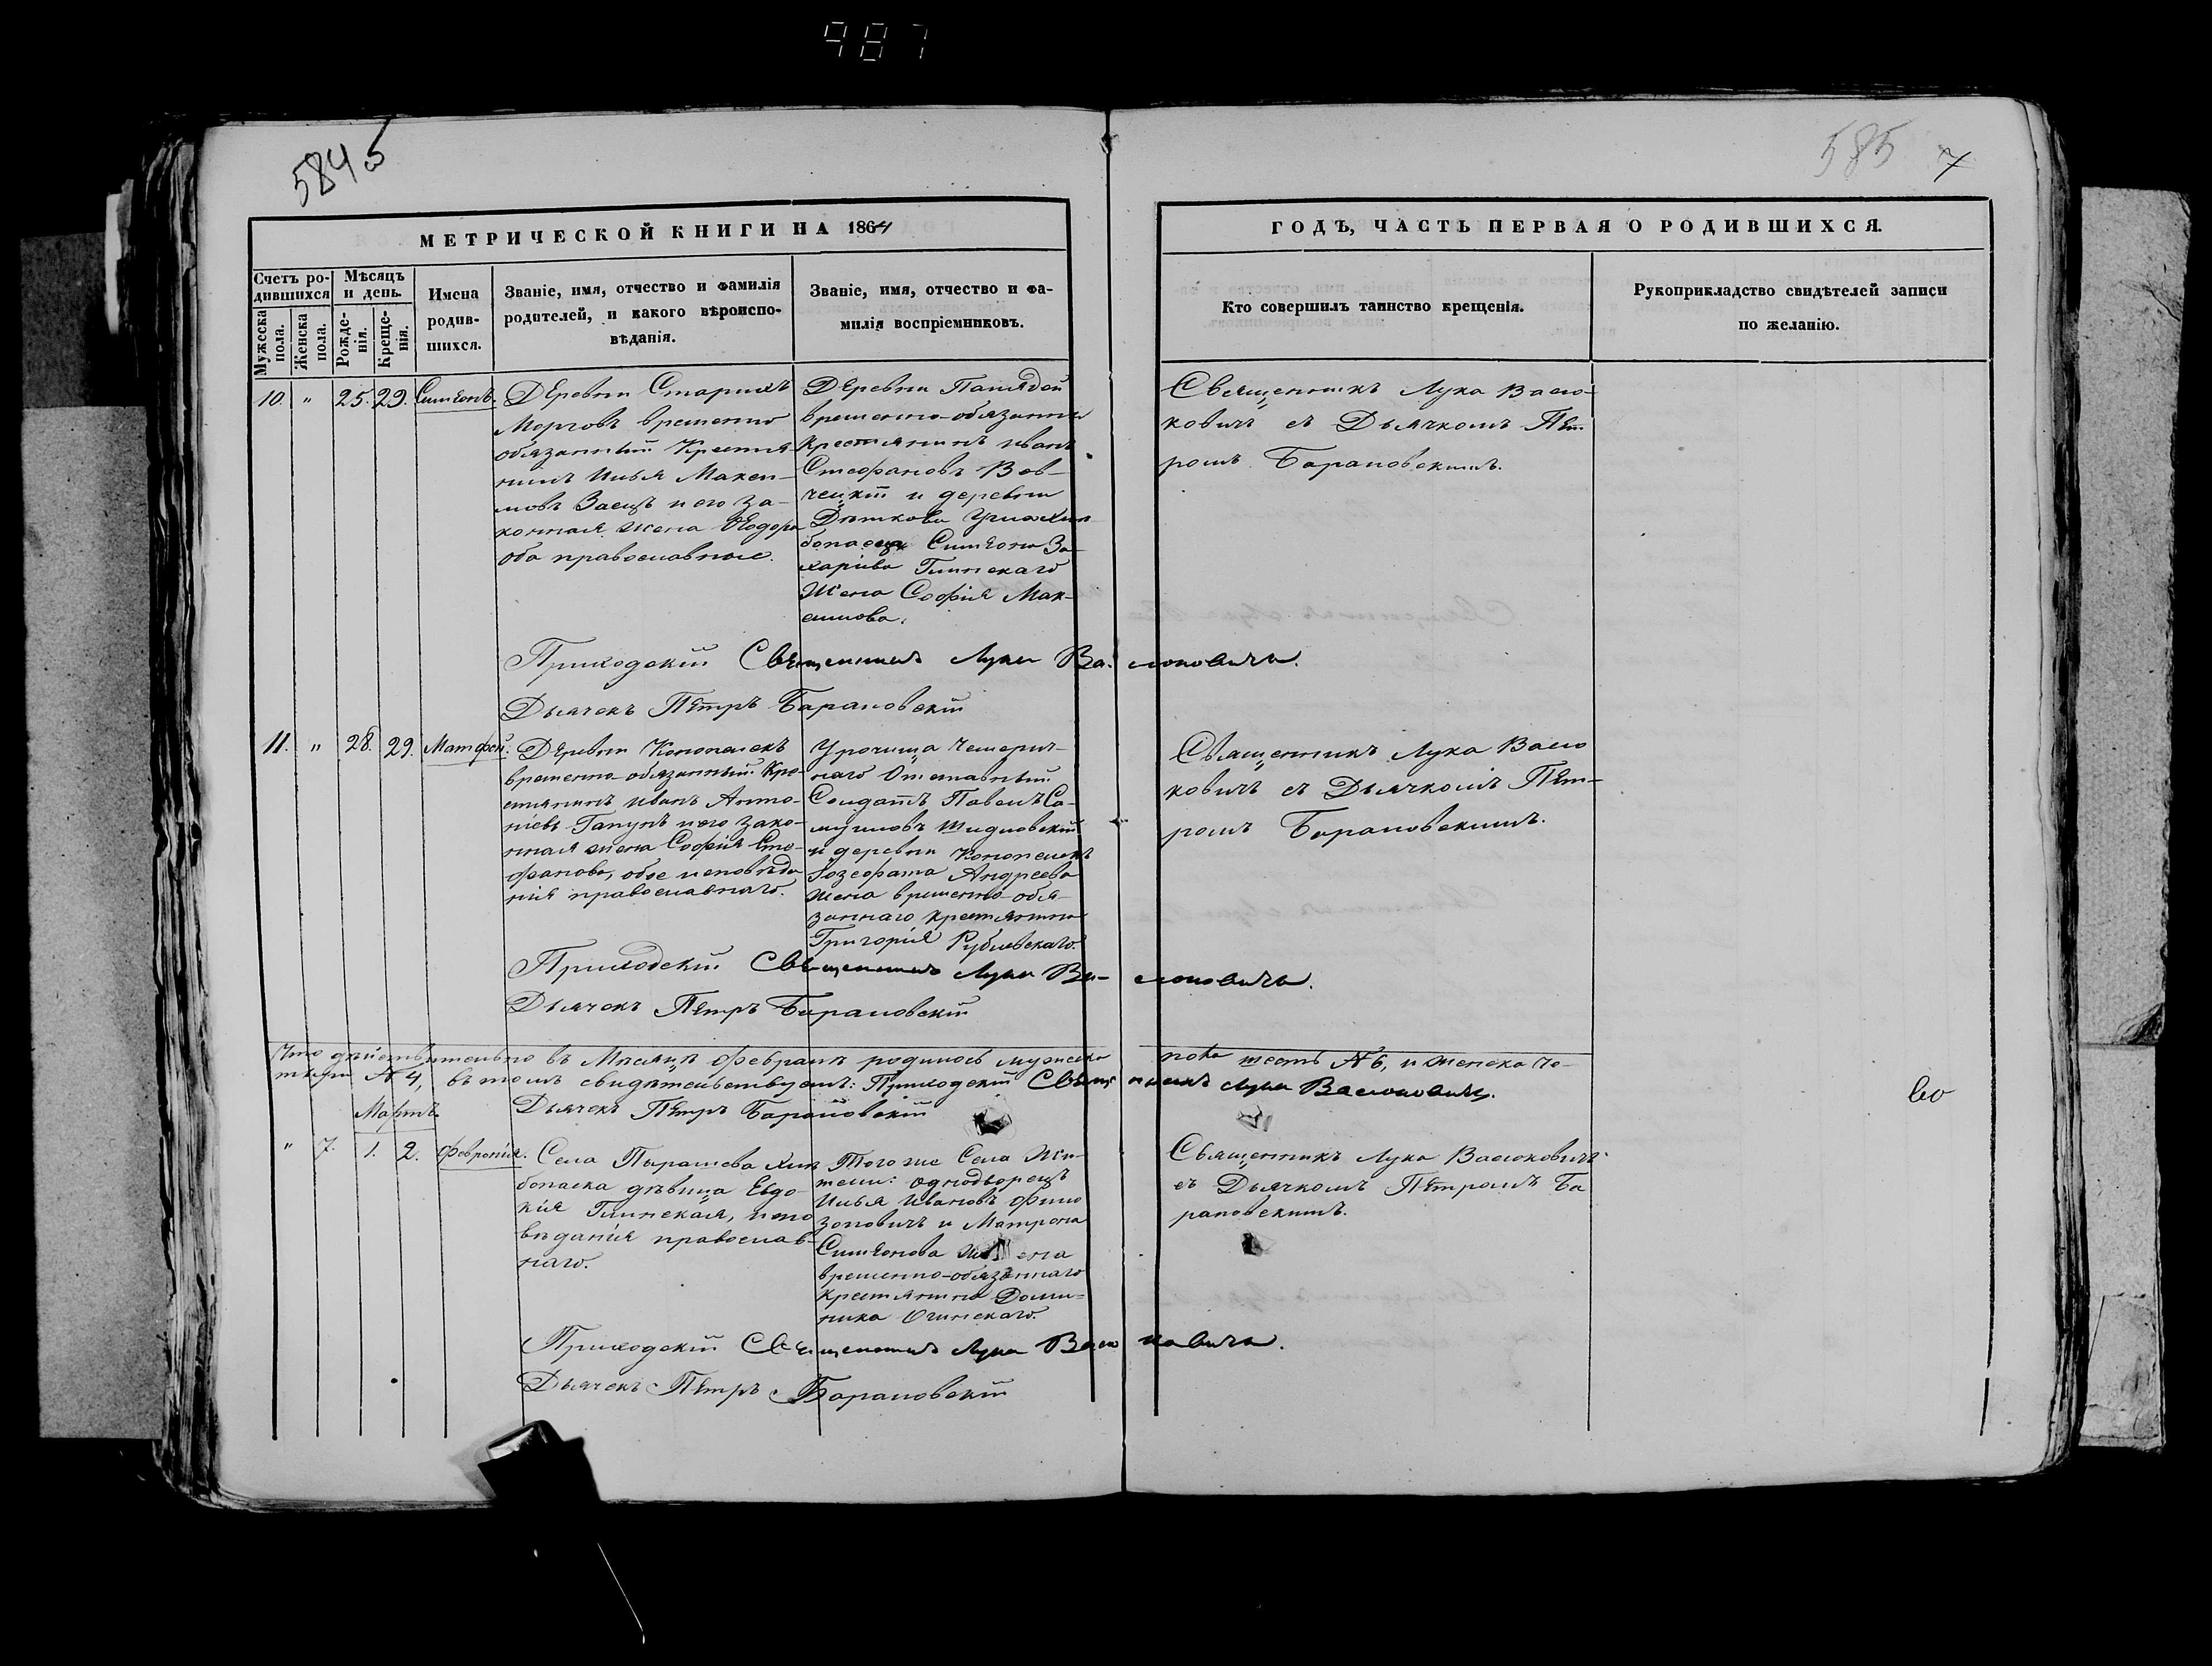 987
584 5
585 7
МЕТРИЧЕСКОЙ КНИГИ НА 1864
ГОДЪ, ЧАСТЬ ПЕРВАЯ О РОДИВШИХСЯ.
Счетъ ро-
дившихся
Мужеска
пола.
Женска
пола.
Мѣсяцъ
и день.
Рожде-
нія.
Креще-
нія.
Имена
родив-
шихся.
Званіе, имя, отчество и фамилія
родителей, и какого вѣроиспо-
вѣданія.
Званіе, имя, отчество и фа-
милія воспріемниковъ.
Кто совершилъ таинство крещенія.
Рукоприкладство свидѣтелей записи
по желанію.
10. " 25. 29. Симеонъ.
Деревни Старихъ
Морговъ временно
обязанный Крестья-
нинъ Илья Макси-
мовъ Заецъ и его за-
конная жена Ѳеодора
оба православные.
Деревни
временно-обязанный
крестьянинъ Иванъ
Стефановъ Вов-
чецкій и деревни
Дяткова
Симеона За-
харіева Глинскаго
Жена Софія Мак-
симова.
Священникъ Лука Васю-
ковичъ съ Дьячкомъ Пет-
ромъ Барановскимъ.
Приходскій Священникъ Лука Васюковичъ.
Дьячекъ Петръ Барановскій
11. " 28. 29. Матфей.
Деревни Конопелекъ
временно-обязанный Кре-
стьянинъ Иванъ Анто-
ніевъ Гапунъ и его зако-
нная жена Софія Сте-
фанова, обое исповѣда
нія православнаго.
Урочища Чемерич-
наго Отставный
Солдатъ Павелъ Са-
муиловъ Шидловскій
и деревни Конопелекъ
Іозефата Андреева
жена временно-обя-
заннаго крестьянина
Григорія Рублевскаго.
Священникъ Лука Васю
ковичъ съ Дьячкомъ Пет-
ромъ Барановскимъ.
Приходскій Священникъ Лука Васюковичъ.
Дьячекъ Петръ Барановскій
Что дѣйствительно въ Мѣсяцѣ Февралѣ родилось мужеска пола шесть №6, и женска че-
тыри №4, въ томъ свидѣтельствуемъ: Приходскій Священникъ Лука Васюковичъ.
Дьячекъ Петръ Барановскій
Мартъ
" 7. 1. 2. Февронія.
Села Пырашева
дѣвица Евдо-
кія Глинская, испо
вѣданія православ-
наго.
Того же Села Жи-
тели: однодворецъ
Илья Ивановъ Фило
зоповичъ и Матрона
Симеонова жена
временно-обязаннаго
крестьянина Доми-
ника Огинскаго.
Священникъ Лука Васюковичъ
съ Дьячкомъ Петромъ Ба
рановскимъ.
Приходскій Священникъ Лука Васюковичъ.
Дьячекъ Петръ Барановскій